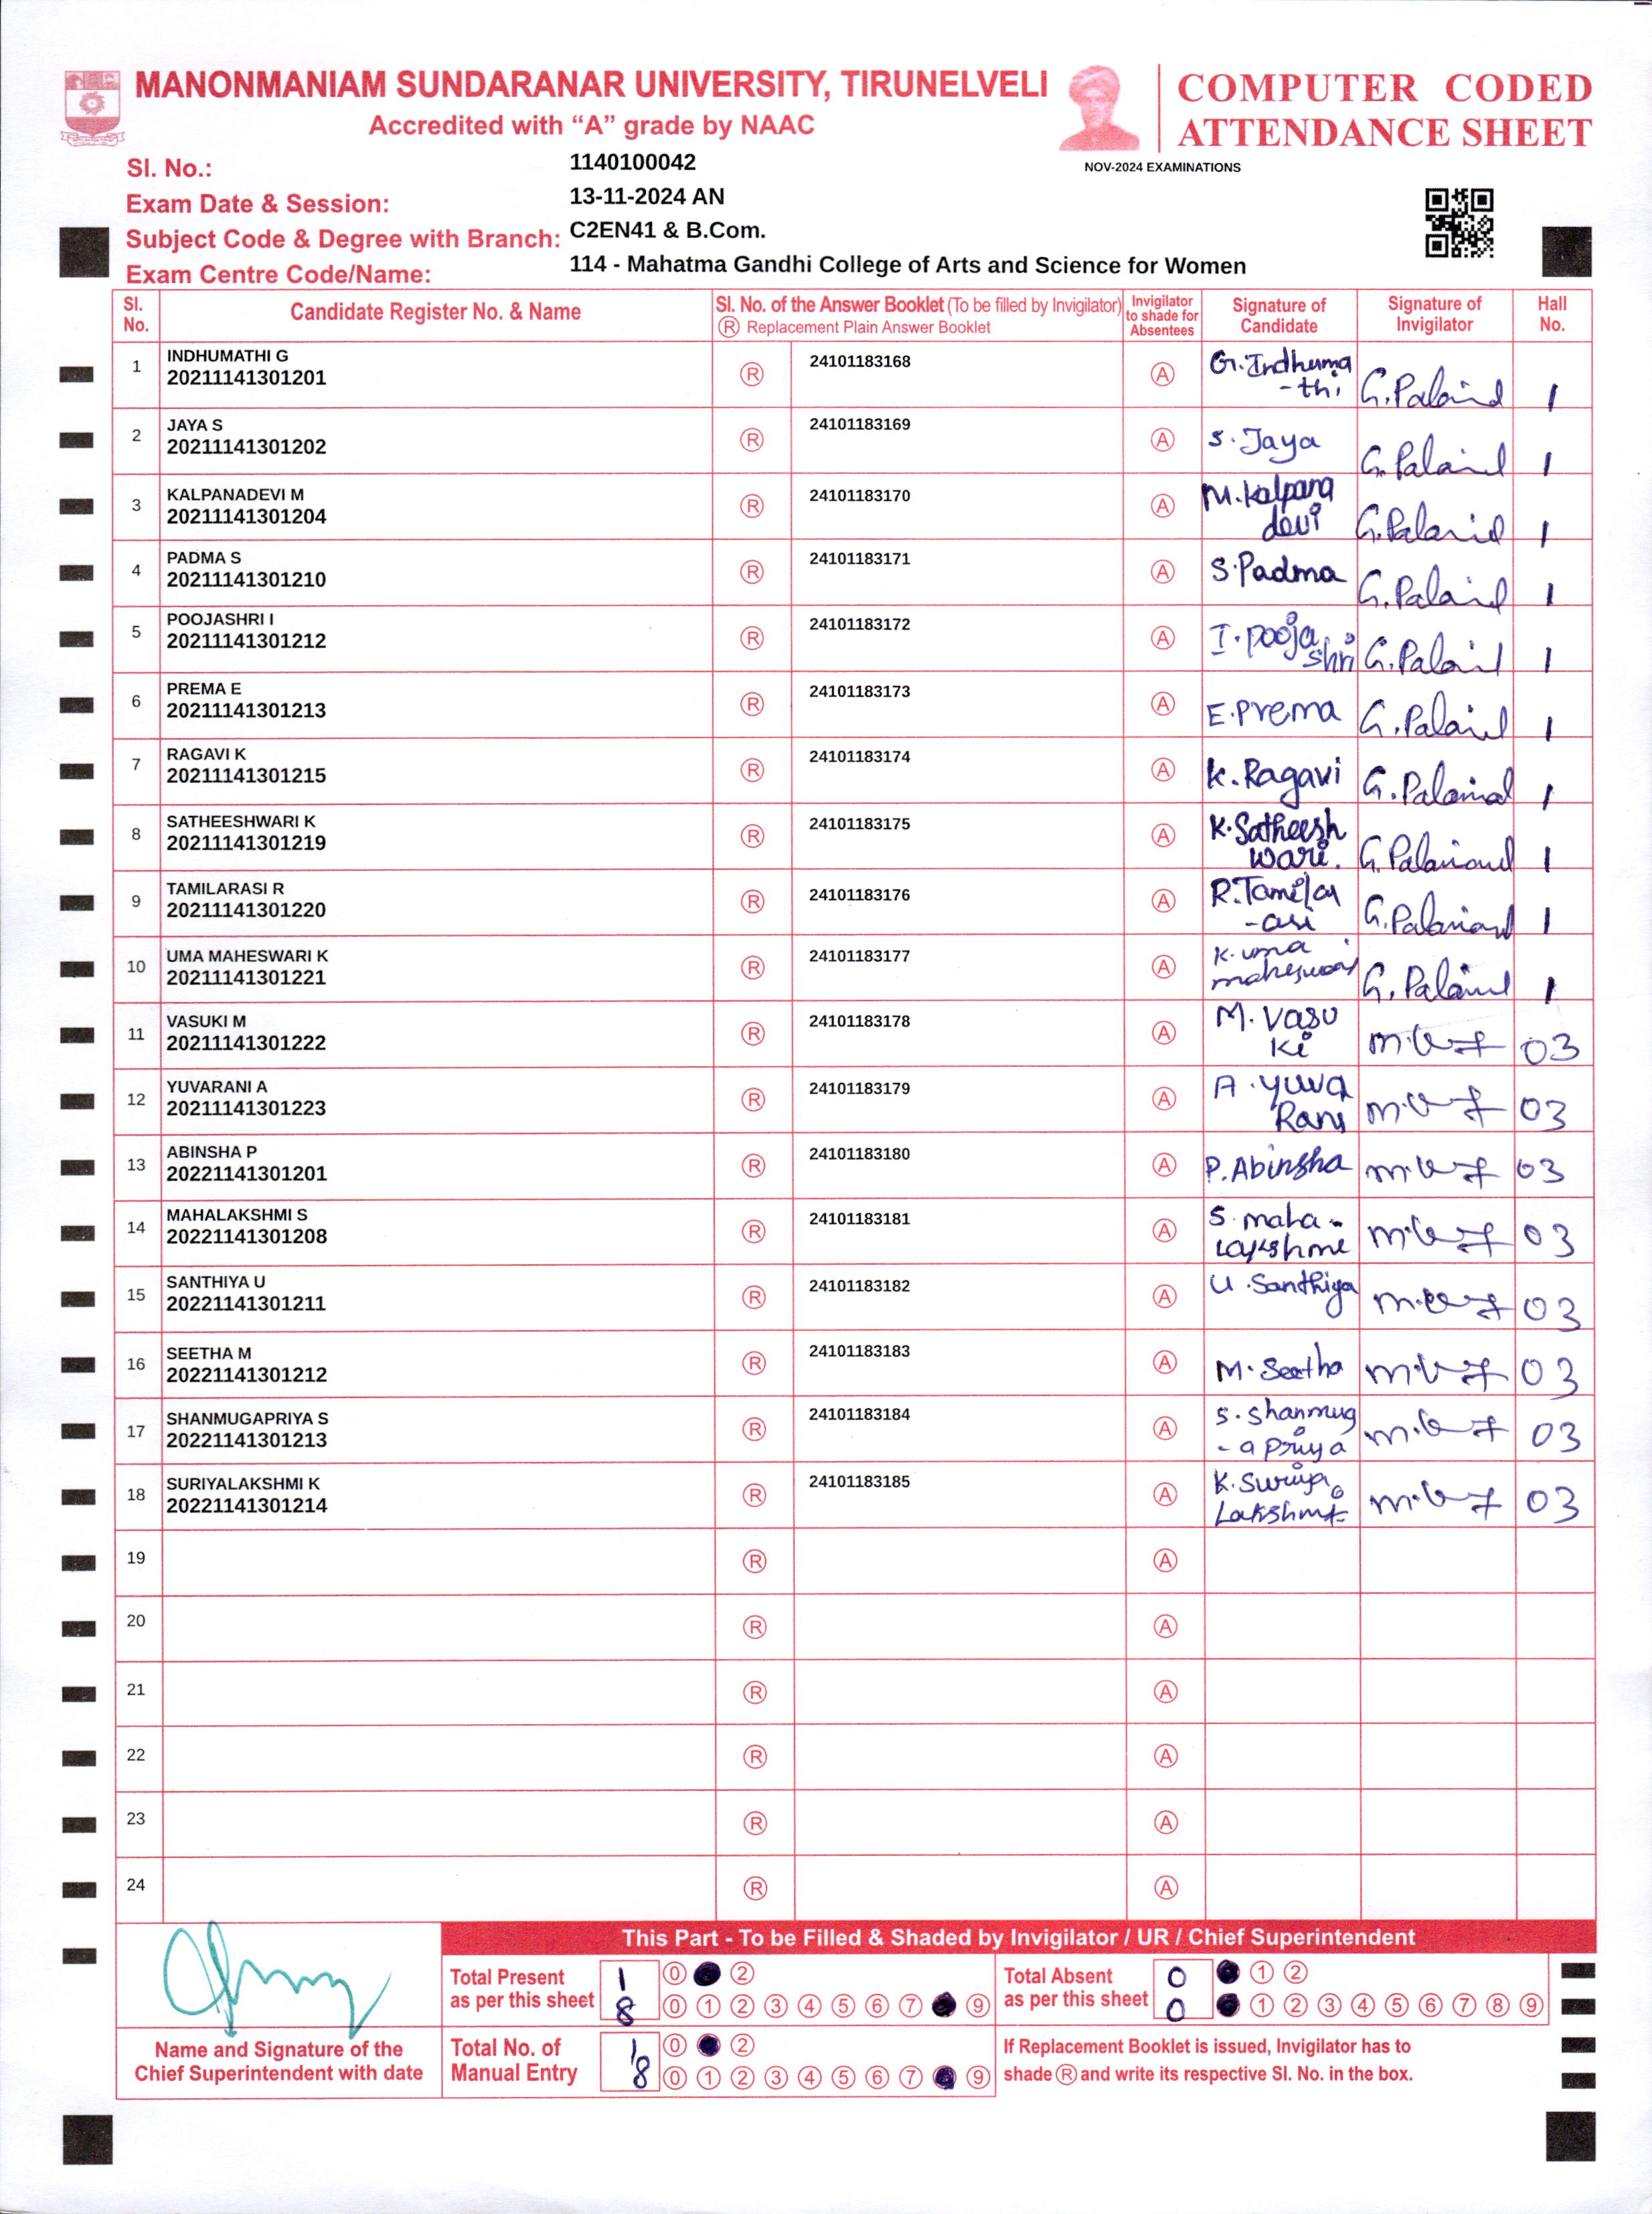 MANONMANIAM SUNDARANAR UNIVERSITY, TIRUNELVELI
Accredited with “A” grade by NAAC
COMPUTER CODED
ATTENDANCE SHEET
NOV-2024 EXAMINATIONS
Sl. No.: 1140100042
Exam Date & Session: 13-11-2024 AN
Subject Code & Degree with Branch: C2EN41 & B.Com.
Exam Centre Code/Name: 114 - Mahatma Gandhi College of Arts and Science for Women
Sl. No. Candidate Register No. & Name Sl. No. of the Answer Booklet (To be filled by Invigilator) Ⓡ Replacement Plain Answer Booklet Invigilator to shade for Absentees Signature of Candidate Signature of Invigilator Hall No.
1 INDHUMATHI G 20211141301201 Ⓡ 24101183168 Ⓐ G. Indhuma -thi 1
2 JAYA S 20211141301202 Ⓡ 24101183169 Ⓐ S. Jaya 1
3 KALPANADEVI M 20211141301204 Ⓡ 24101183170 Ⓐ M. Kalpana devi 1
4 PADMA S 20211141301210 Ⓡ 24101183171 Ⓐ S. Padma 1
5 POOJASHRI I 20211141301212 Ⓡ 24101183172 Ⓐ I. pooja shri 1
6 PREMA E 20211141301213 Ⓡ 24101183173 Ⓐ E. Prema 1
7 RAGAVI K 20211141301215 Ⓡ 24101183174 Ⓐ K. Ragavi 1
8 SATHEESHWARI K 20211141301219 Ⓡ 24101183175 Ⓐ K. Satheesh wari. 1
9 TAMILARASI R 20211141301220 Ⓡ 24101183176 Ⓐ R. Tamilar -asi 1
10 UMA MAHESWARI K 20211141301221 Ⓡ 24101183177 Ⓐ K. uma maheswari 1
11 VASUKI M 20211141301222 Ⓡ 24101183178 Ⓐ M. Vasu Ki 03
12 YUVARANI A 20211141301223 Ⓡ 24101183179 Ⓐ A. Yuva Rani 03
13 ABINSHA P 20221141301201 Ⓡ 24101183180 Ⓐ P. Abinsha 03
14 MAHALAKSHMI S 20221141301208 Ⓡ 24101183181 Ⓐ S. maha- 03
15 SANTHIYA U 20221141301211 Ⓡ 24101183182 Ⓐ U. Santhiya 03
16 SEETHA M 20221141301212 Ⓡ 24101183183 Ⓐ M. Seetha 03
17 SHANMUGAPRIYA S 20221141301213 Ⓡ 24101183184 Ⓐ S. Shanmug -a priya 03
18 SURIYALAKSHMI K 20221141301214 Ⓡ 24101183185 Ⓐ K. Suriya Lakshmi 03
19 Ⓡ Ⓐ
20 Ⓡ Ⓐ
21 Ⓡ Ⓐ
22 Ⓡ Ⓐ
23 Ⓡ Ⓐ
24 Ⓡ Ⓐ
This Part - To be Filled & Shaded by Invigilator / UR / Chief Superintendent
Total Present as per this sheet
1 0 2
8 0 1 2 3 4 5 6 7 9
Total Absent as per this sheet
0 1 2
0 1 2 3 4 5 6 7 8 9
Name and Signature of the
Chief Superintendent with date
Total No. of Manual Entry
1 0 2
8 0 1 2 3 4 5 6 7 9
If Replacement Booklet is issued, Invigilator has to
shade Ⓡ and write its respective Sl. No. in the box.